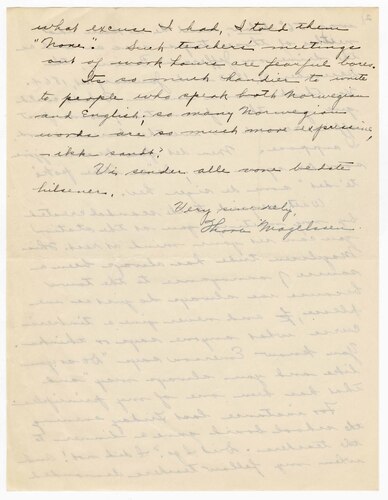 what excuse I had, I told them
"None". Such teacher's meetings
out of work hours are fearful bores.
Its so much handier to write
to people who speak both Norwegian
and English; so many Norwegian
words are so much more expressive,
ikke sandt?
Vi sender alle vore bedste
hilsener.
Very sincerely,
Thora Magelssen.